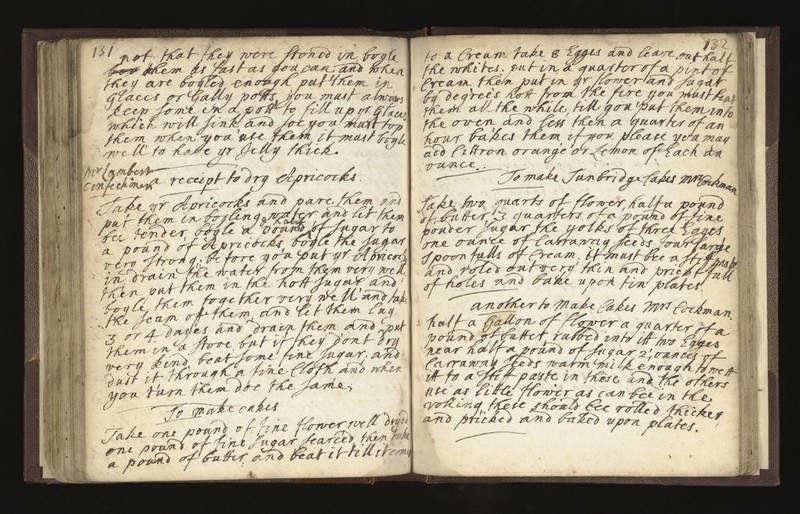 131
not that they were stoned in boyle
them as fast as you can and when
they are boyled enough put them in
Glaces or Gally potts you must always
keep some in a pott to fill up yr Glaces
which will sink and soe you must top
them when you use them it must boyle
well to have yr Jelly thick.
Mr Lambert
Confectioner a receipt to dry Apricocks.
Take yr Apricocks and pare them and
put them in boyling water and let them
bee tender, boyle a pound & halfe of sugar to
a pound of Apricocks boyle the sugar
very strong, before you put yr Apricocks
in drain the water from them very well
then put them in the hott sugar and
boyle them together very well and take
the scam of them, and let them lay
3 or 4 dayes and drain them and put
them in a stove but if they dont dry
very kind beat some fine sugar, and
dust it through a fine Cloth and when
you turn them doe the same,
To make cakes
Take one pound of fine flower well dryed
one pound of fine sugar searced, then take
a pound of butter, and beat it till it comes
132
to a Cream take 8 Egges and leave out half
the whites. put in a quarter of a pint of
Cream, then put in yr flower and sugar
by degrees hott from the fire you must beat
them all the while, till you put them into
the oven and less then a quarter of an
hour bakes them if you please you may
add Cittron orange or Lemon of Each an
ounce.
To make Tunbridge Cakes Mrs Cockman
Take two quarts of flower, half a pound
of butter, 3 quarters of a pound of fine
pouder sugar the yolks of three Egges
one ounce of Carraway seeds four large
spoon fulls of Cream; it must bee a stif paste
and roled out very thin and prickt full
of holes and bake upon tin plates.
another to Make Cakes Mrs Cockman
half a Gallon of flower a quarter of a
pound of butter rubbed into it two Egges
near half a pound of sugar 2 ounces of
Carraway seeds warm milk enough to wett
it to a stif paste in these and the others
use as little flower as can bee in the
rolling, these should bee rolled thicker
and pricked and baked upon plates.